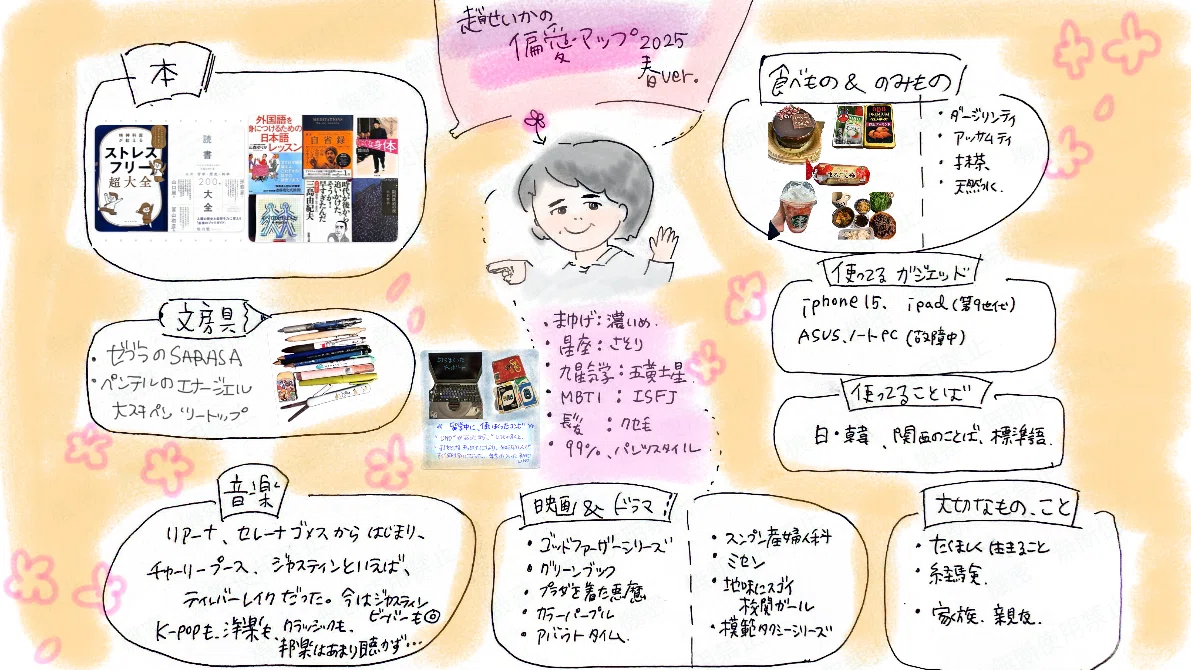 趙せいかの
偏愛マップ2025
春ver.
本
精神科医
が教える
ストレス
フリー
超大全
読書
200冊
大全
外国語を
身につけるための
日本語
レッスン
MEDITATIONS
自省録
身体
三島由紀夫
文房具
・ゼブラのSARASA
・ペンテルのエナージェル
大スキペン ツートップ
・まゆげ：濃いめ.
・星座：さそり
・九星気学：五黄土星
・MBTI：ISFJ
・髪：クセモ
・99%、パンツスタイル
食べもの & のみもの
・ダージリンティ
・アッサムティ
・抹茶
・天然水.
使ってるガジェッド
iphone 15、 ipad (第9世代)
ASUS ノートPC (故障中)
使ってることば
日・韓、関西のことば、標準語.
音楽
リアーナ、セレーナゴメスからはじまり、
チャーリープース、ジャスティンといえば、
ティンバーレイクだった。今はジャスティン
ビーバーも◎
K-popも、洋楽も、クラッシックも、
邦楽はあまり聴かず…
映画 & ドラマ
・ゴッドファーザーシリーズ
・グリーンブック
・プラダを着た悪魔
・カラーパープル
・アバウトタイム.
・スンプン産婦人科
・ミセン
・地味にスゴイ
校閲ガール
・模範タクシーシリーズ
大切なもの、こと
・たくましく生きること
・経験.
・家族、親友.